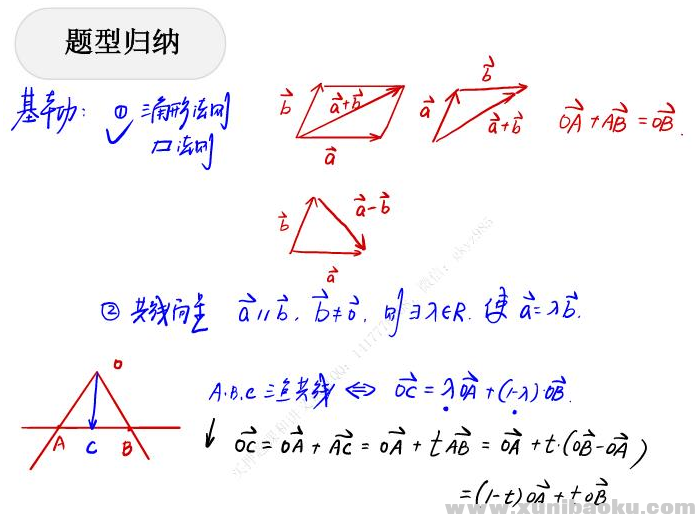 题型归纳
基本功: ① 三角形法则
口法则
b⃗ a⃗+b⃗ a⃗
a⃗ b⃗ a⃗+b⃗
OA⃗ + AB⃗ = OB⃗.
b⃗ a⃗-b⃗ a⃗
② 共线向量 a⃗ // b⃗, b⃗≠0⃗, 则∃λ∈R. 使 a⃗=λb⃗.
O A C B
A.B.C 三点共线 ⇔ OC⃗ = λOA⃗ + (1-λ)·OB⃗.
↓ OC⃗ = OA⃗ + AC⃗ = OA⃗ + tAB⃗ = OA⃗ + t·(OB⃗-OA⃗)
=(1-t)OA⃗ + tOB⃗
www.xunibaoku.com